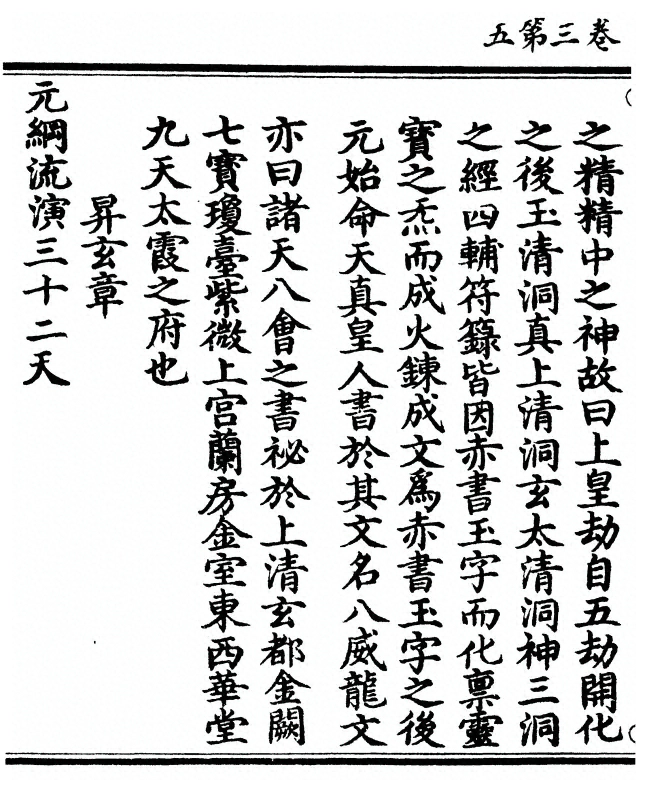 卷三第五
之精精中之神故曰上皇劫自五劫開化
之後玉清洞真上清洞玄太清洞神三洞
之經四輔符籙皆因赤書玉字而化禀靈
寶之炁而成火鍊成文爲赤書玉字之後
元始命天真皇人書於其文名八威龍文
亦曰諸天八會之書祕於上清玄都金闕
七寶瓊臺紫微上宮蘭房金室東西華堂
九天太霞之府也
昇玄章
元綱流演三十二天